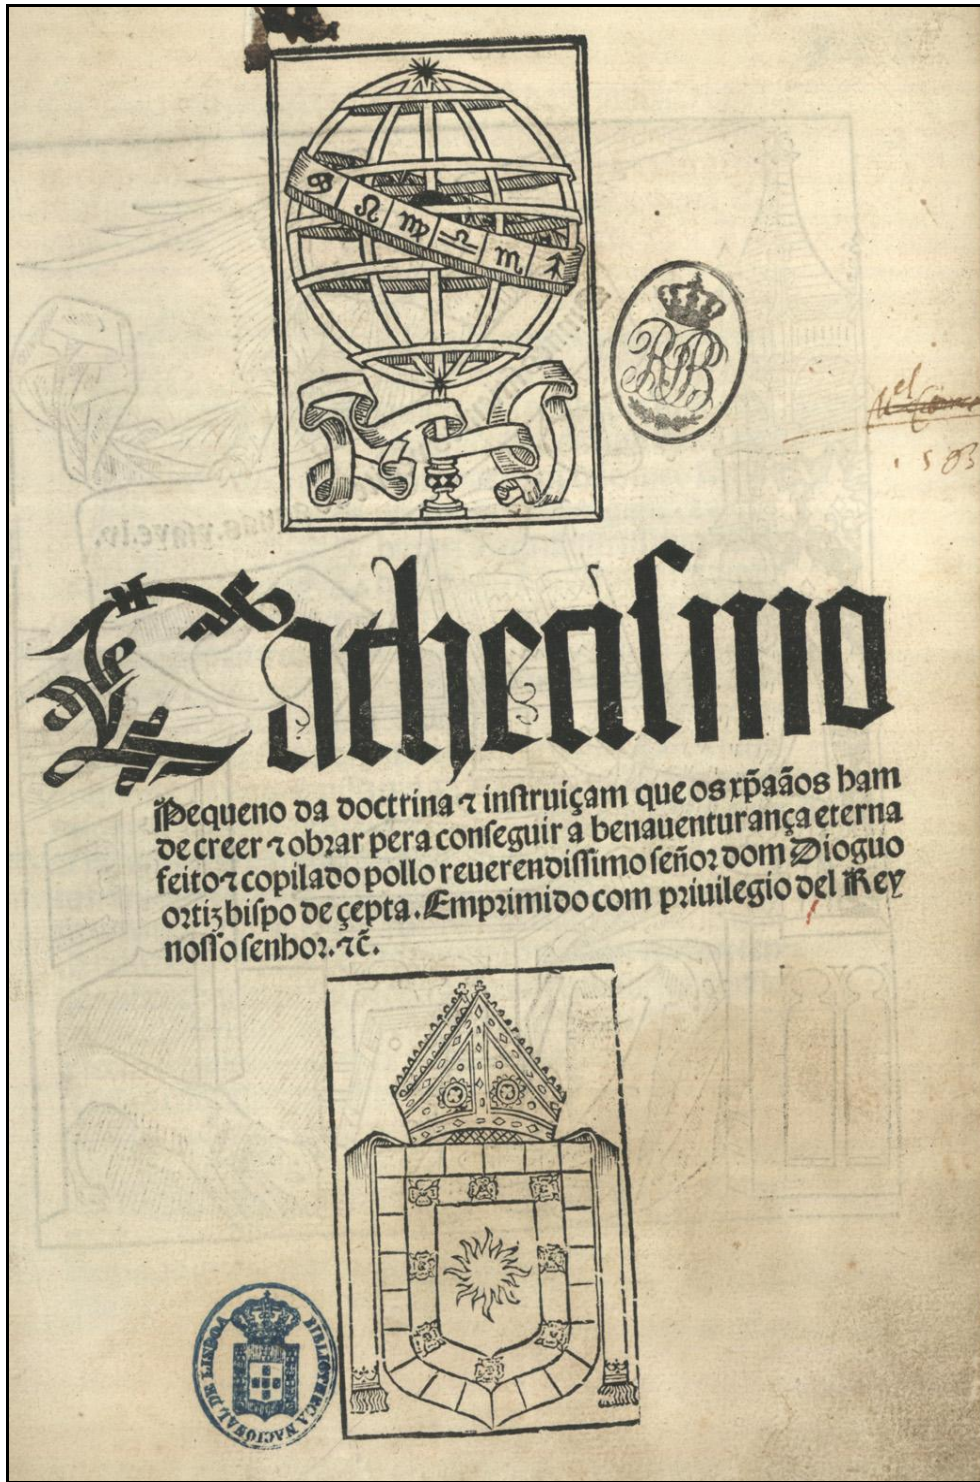 ♋ ♌ ♍ ♎ ♏ ♐
Cathecismo
Pequeno da doctrina ⁊ instruiçam que os xp̃aãos ham
de creer ⁊ obrar pera conseguir a benauenturança eterna
feito ⁊ copilado pollo reuerendissimo señor dom Dioguo
ortiz bispo de çepta. Emprimido com priuilegio del Rey
nosso senhor. ⁊c̃.
BIBLIOTHECA NACIONAL DE LISBOA